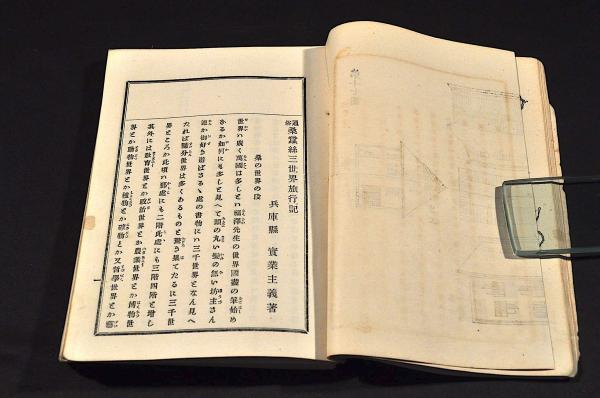 通俗 桑蠶絲三世界旅行記
兵庫縣 實業主義著
桑の世界の段
世界ハ廣く萬國は多しとハ福澤先生の世界國盡の筆始め
さるか如何にも多しと見へて頭の丸い髪の無い坊主さん
達か御好き遊ばさるゝ處の書物にハ三千世界となん見へ
たれば隨分世界は多くあるものと驚き果てたるに三千世
界ところか此頃ハ那處にも二階此處にも三階四階と增し
其外には敎育世界とか政治世界とか農業世界とか博物世
界とか動物世界とか植物とか礦物とか又哲學世界とか